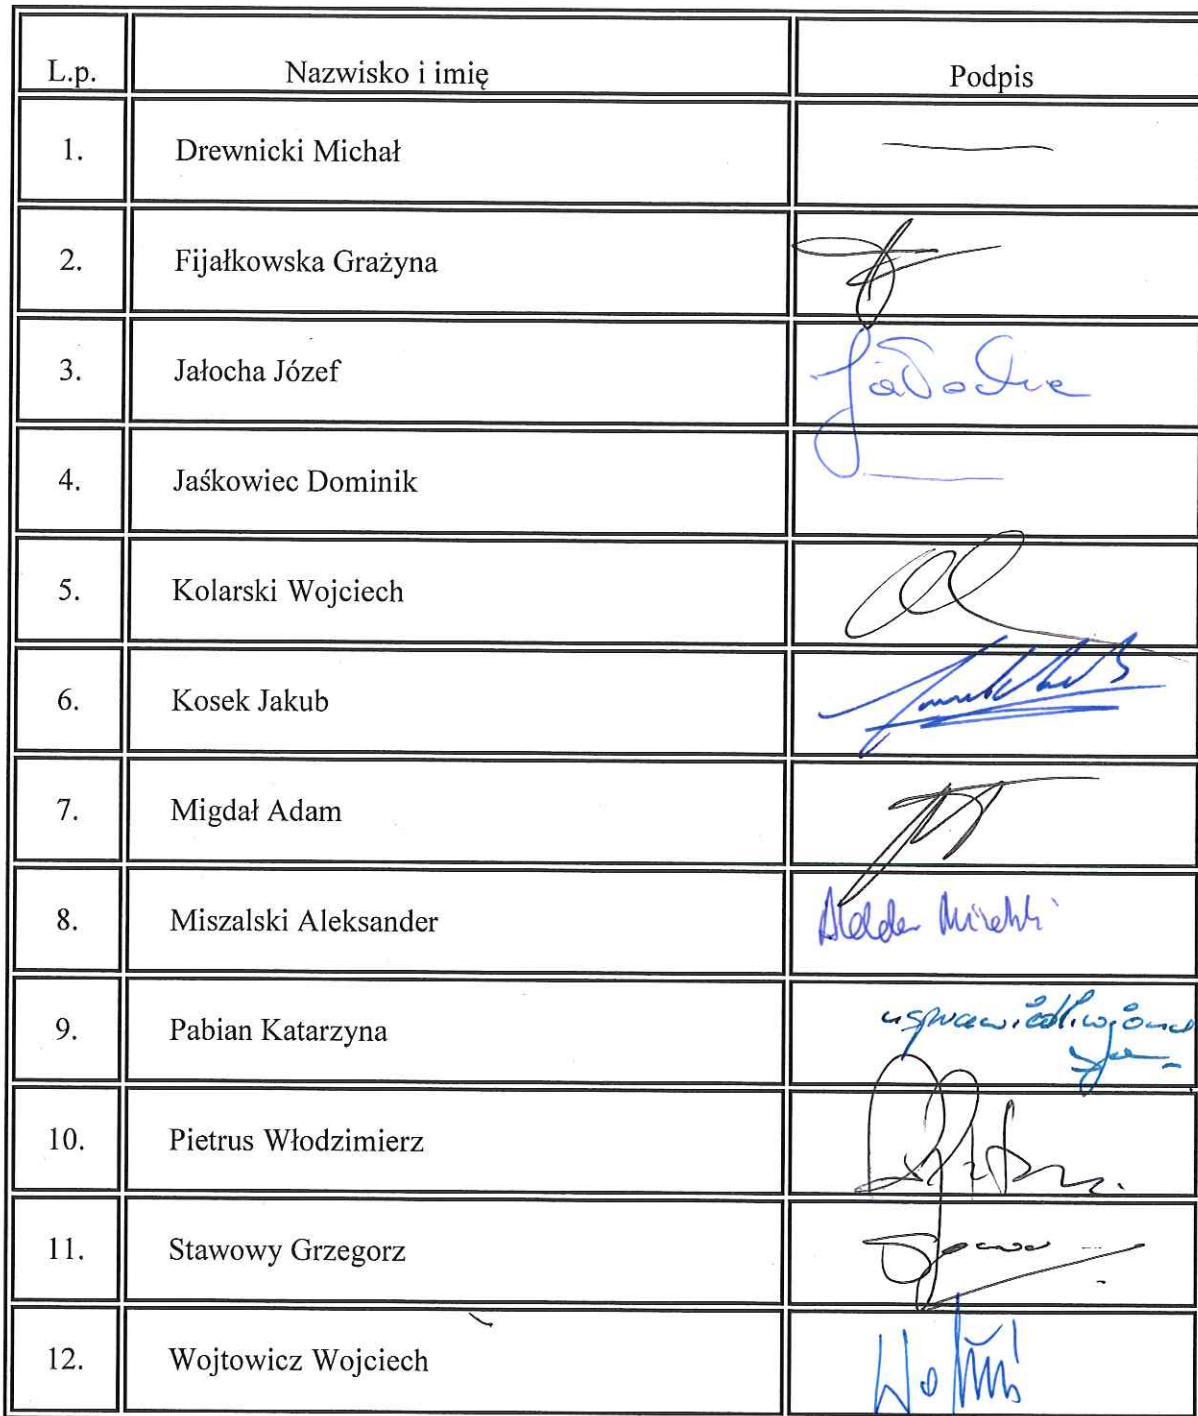 L.p. Nazwisko i imię Podpis
1. Drewnicki Michał
2. Fijałkowska Grażyna
3. Jałocha Józef Jałocha
4. Jaśkowiec Dominik
5. Kolarski Wojciech
6. Kosek Jakub
7. Migdał Adam
8. Miszalski Aleksander
9. Pabian Katarzyna usprawiedliwiona
10. Pietrus Włodzimierz
11. Stawowy Grzegorz
12. Wojtowicz Wojciech